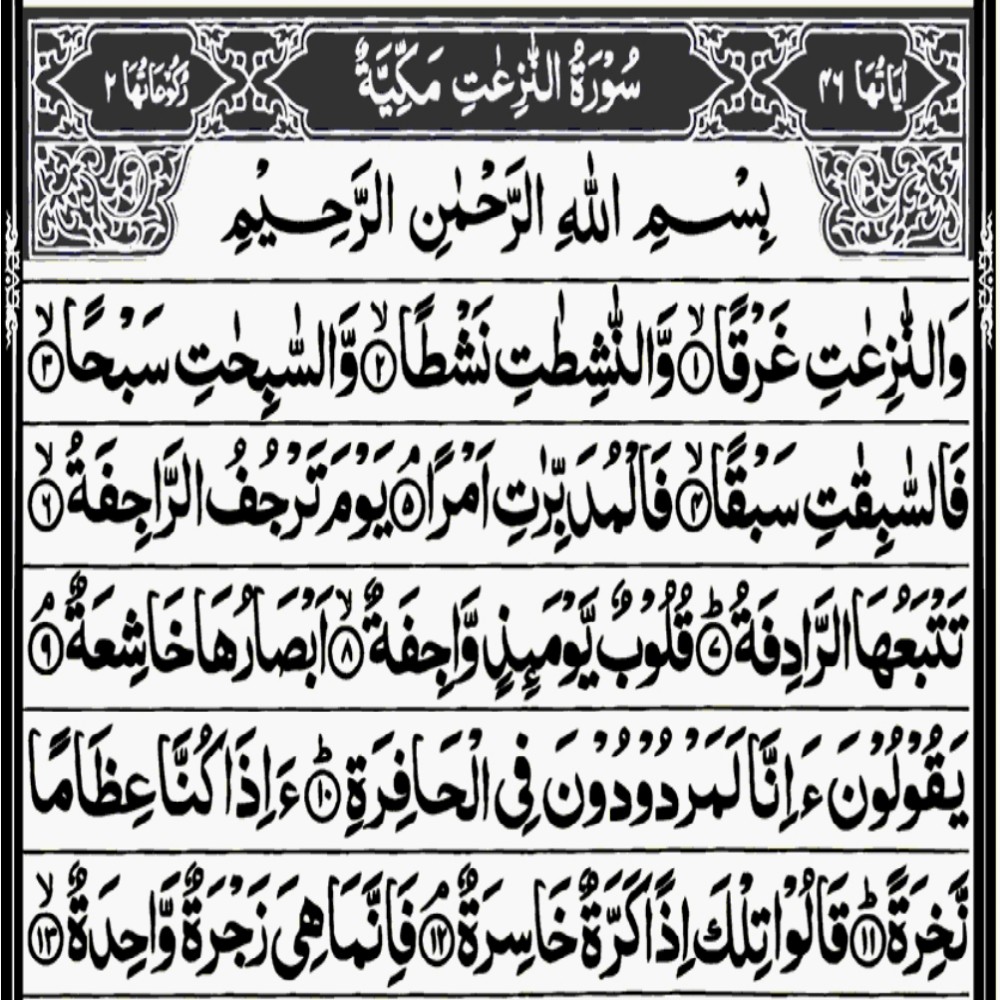 اٰيَاتُهَا ۴۶ سُوْرَةُ النّٰزِعٰتِ مَكِّيَّةٌ رُكُوْعَاتُهَا ۲
بِسْمِ اللّٰهِ الرَّحْمٰنِ الرَّحِيْمِ
وَالنّٰزِعٰتِ غَرْقًا ۙ﴿۱﴾ وَّالنّٰشِطٰتِ نَشْطًا ۙ﴿۲﴾ وَّالسّٰبِحٰتِ سَبْحًا ۙ﴿۳﴾
فَالسّٰبِقٰتِ سَبْقًا ۙ﴿۴﴾ فَالْمُدَبِّرٰتِ اَمْرًا ۘ﴿۵﴾ يَوْمَ تَرْجُفُ الرَّاجِفَةُ ۙ﴿۶﴾
تَتْبَعُهَا الرَّادِفَةُ ؕ﴿۷﴾ قُلُوْبٌ يَّوْمَئِذٍ وَّاجِفَةٌ ۙ﴿۸﴾ اَبْصَارُهَا خَاشِعَةٌ ۘ﴿۹﴾
يَقُوْلُوْنَ ءَاِنَّا لَمَرْدُوْدُوْنَ فِى الْحَافِرَةِ ؕ﴿۱۰﴾ ءَاِذَا كُنَّا عِظَامًا
نَّخِرَةً ؕ﴿۱۱﴾ قَالُوْا تِلْكَ اِذًا كَرَّةٌ خَاسِرَةٌ ۘ﴿۱۲﴾ فَاِنَّمَا هِىَ زَجْرَةٌ وَّاحِدَةٌ ۙ﴿۱۳﴾